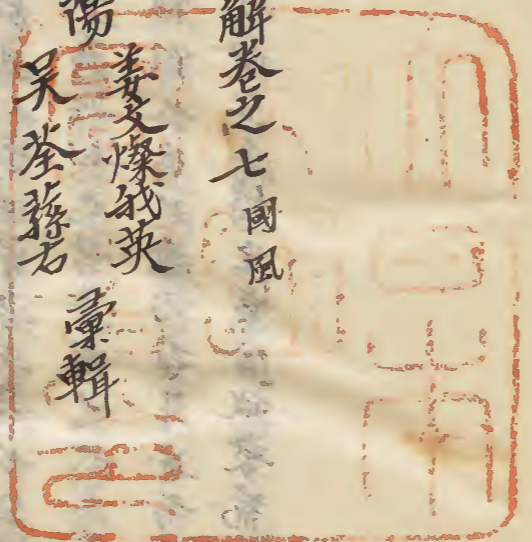 解卷之七國風
陽
姜文燦我英
吴荃蓀右
彙輯